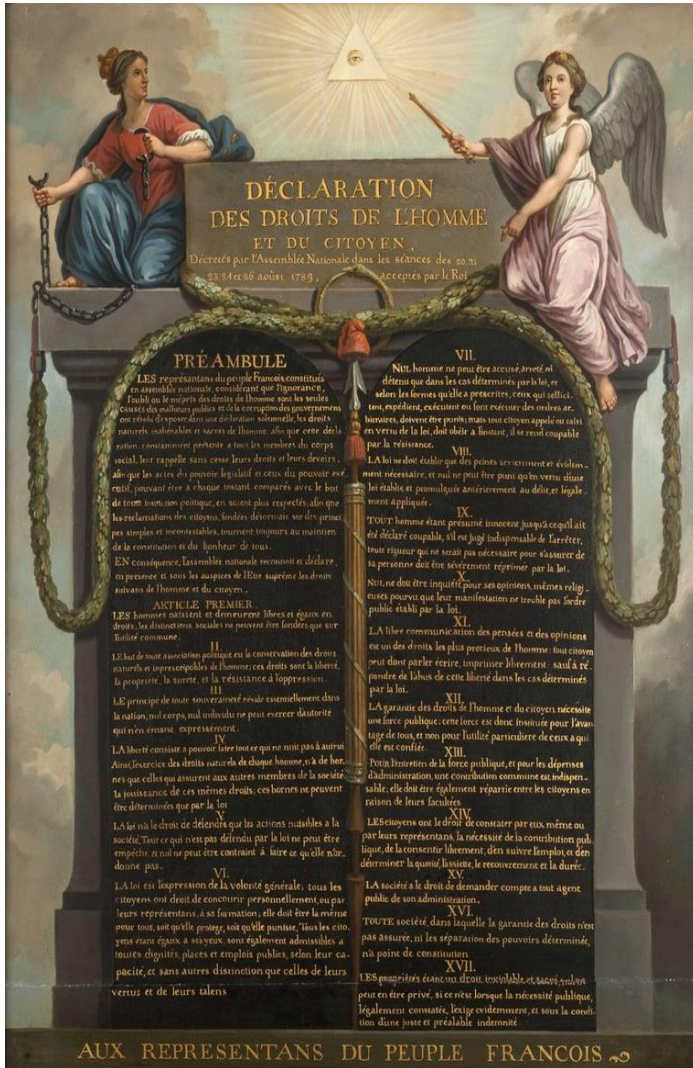 DÉCLARATION
DES DROITS DE L'HOMME
ET DU CITOYEN,
Décretés par l'Assemblée Nationale dans les séances des 20, 21
23, 24 et 26 août 1789, acceptés par le Roi
PRÉAMBULE
LES représantans du peuple Francois, constitués
en assemblée nationale, considérant que l'ignorance,
l'oubli ou le mépris des droits de l'homme sont les seules
causes des malheurs publics et de la corruption des gouvernemens
ont résolu d'exposer dans une déclaration solemnelle, les droits
naturels inaliénables et sacrés de l'homme: afin que cette décla
ration, constamment présente a tous les membres du corps
social, leur rappelle sans cesse leurs droits et leurs devoirs,
afin que les actes du pouvoir législatif et ceux du pouvoir exé
cutif, pouvant être a chaque instant comparés avec le but
de toute institution politique, en soient plus respectés; afin que
les reclamations des citoyens, fondées désormais sur des princi
pes simples et incontestables, tournent toujours au maintien
de la constitution et du bonheur de tous.
EN conséquence, l'assemblée nationale reconnoit et déclare,
en présence et sous les auspices de l'Etre suprême les droits
suivans de l'homme et du citoyen.
ARTICLE PREMIER
LES hommes naissent et demeurent libres et égaux en
droits, les distinctions sociales ne peuvent être fondées que sur
l'utilité commune.
II.
LE but de toute association politique est la conservation des droits
naturels et imprescriptibles de l'homme; ces droits sont la liberté,
la propriété, la sureté, et la résistance à l'oppression.
III
LE principe de toute souveraineté réside essentiellement dans
la nation, nul corps, nul individu ne peut exercer d'autorité
qui n'en émane expressément.
IV
LA liberté consiste a pouvoir faire tout ce qui ne nuit pas à autrui
Ainsi, l'exercice des droits naturels de chaque homme, n'a de bor-
nes que celles qui assurent aux autres membres de la société
la jouissance de ces mêmes droits; ces bornes ne peuvent
être déterminées que par la loi
V.
LA loi n'a le droit de défendre que les actions nuisibles a la
société. Tout ce qui n'est pas défendu par la loi ne peut être
empêché, et nul ne peut être contraint à faire ce qu'elle n'or-
donne pas.
VI.
LA loi est l'expression de la volonté générale; tous les
citoyens ont droit de concourir personnellement, ou par
leurs représentans, à sa formation; elle doit être la même
pour tous, soit qu'elle protege, soit qu'elle punisse. Tous les cito
yens étant égaux à ses yeux, sont également admissibles a
toutes dignités, places et emplois publics, selon leur ca-
pacité, et sans autres distinction que celles de leurs
vertus et de leurs talens
VII.
NUL homme ne peut être accusé, arreté, ni
détenu que dans les cas déterminés par la loi, et
selon les formes qu'elle a prescrites, ceux qui sollici-
tent, expédient, exécutent ou font exécuter des ordres ar-
bitraires, doivent être punis; mais tout citoyen appelé ou saisi
en vertu de la loi, doit obéir a l'instant, il se rend coupable
par la résistance.
VIII.
LA loi ne doit établir que des peines strictement et évidem-
ment nécessaire, et nul ne peut être puni qu'en vertu d'une
loi établie, et promulguée antérierement au délit, et légale-
ment appliquée.
IX.
TOUT homme étant présumé innocent jusqu'à ce qu'il ait
été déclaré coupable, s'il est jugé indispensable de l'arrêter,
toute rigueur qui ne serait pas nécessaire pour s'assurer de
sa personne doit être sévèrement réprimée par la loi.
X.
NUL ne doit être inquiété pour ses opinions, mêmes religi
euses pourvu que leur manifestation ne trouble pas l'ordre
public établi par la loi.
XI.
LA libre communication des pensées et des opinions
est un des droits les plus precieux de l'homme; tout citoyen
peut donc parler écrire, imprimer librement: sauf à ré
pondre de l'abus de cette liberté dans les cas déterminés
par la loi.
XII.
LA garantie des droits de l'homme et du citoyen nécessite
une force publique; cette force est donc instituée pour l'avan
tage de tous, et non pour l'utilité particuliere de ceux a qui
elle est confiée.
XIII.
POUR l'entretien de la force publique, et pour les dépenses
d'administration, une contribution commune est indispen-
sable; elle doit être également répartie entre les citoyens en
raison de leurs facultées
XIV.
LES citoyens ont le droit de constater par eux même ou
par leurs représentans, la nécessité de la contribution pub
lique, de la consentir librement, d'en suivre l'emploi, et d'en
déterminer la quotité, l'assiette, le recouvrement et la durée.
XV.
LA société a le droit de demander compte a tout agent
public de son administration.
XVI.
TOUTE société, dans laquelle la garantie des droits n'est
pas assurée, ni les séparation des pouvoirs déterminée,
n'a point de constitution
XVII.
LES propriétés étant un droit inviolable et sacré, nul ne
peut en être privé, si ce n'est lorsque la nécessité publique,
légalement constatée, l'exige evidemment, et sous la condi-
tion d'une juste et préalable indemnité.
AUX REPRESENTANS DU PEUPLE FRANCOIS